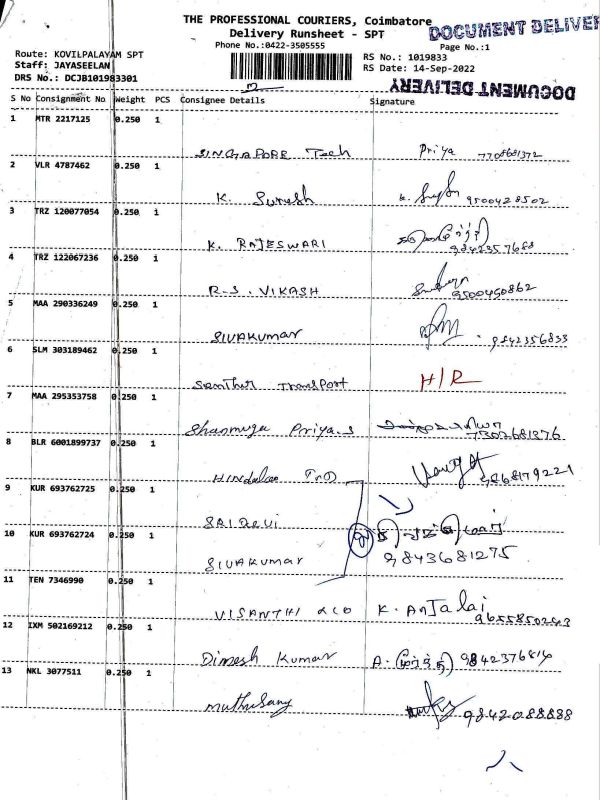 THE PROFESSIONAL COURIERS, Coimbatore
DOCUMENT DELIVER
Delivery Runsheet - SPT
Phone No.:0422-3505555
Page No.:1
Route: KOVILPALAYAM SPT
RS No.: 1019833
Staff: JAYASEELAN
RS Date: 14-Sep-2022
DRS No.: DCJB101983301
DOCUMENT DELIVERY
S No Consignment No Weight PCS Consignee Details Signature
1 MTR 2217125 0.250 1
SINGAPORE Tech Priya 7708681372
2 VLR 4787462 0.250 1
K. Suresh 9500428502
3 TRZ 120077054 0.250 1
K. RAJESWARI 9842357688
4 TRZ 122067236 0.250 1
R.S. VIKASH 9500490862
5 MAA 290336249 0.250 1
SIVAKUMAR 9842356833
6 SLM 303189462 0.250 1
Santhur Transport H/R
7 MAA 295353758 0.250 1
Shanmuga Priya.S 7502681376
8 BLR 6001899737 0.250 1
Hindalca InD 9868179221
9 KUR 693762725 0.250 1
SRIDEVI
10 KUR 693762724 0.250 1
SIVAKUMAR 9843681275
11 TEN 7346990 0.250 1
VISANTHI K. Anjalai
12 IXM 502169212 0.250 1
Dimesh Kumar A. மூர்த்தி 9842376814
13 NKL 3077511 0.250 1
muthusamy 9842088888